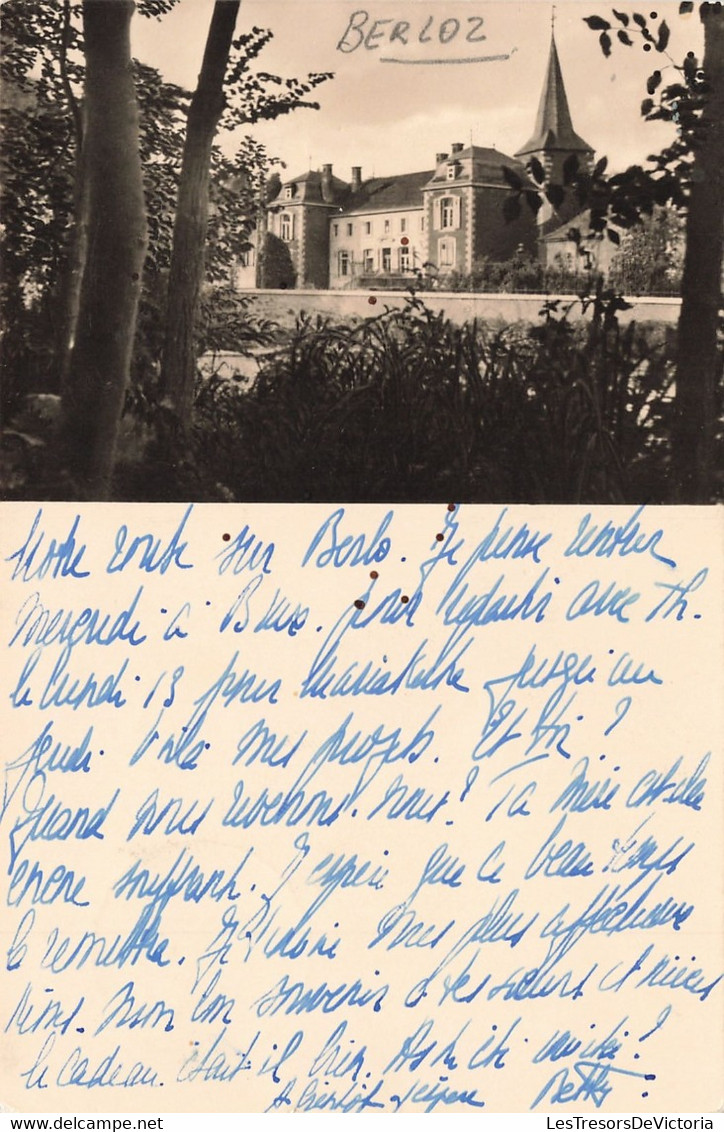 BERLOZ
Notre route sur Berlo. Je pense rentrer
Mercredi à Brux. pour repartir avec Th.
le lundi 13 pour Mariakerke jusqu'au
jeudi. Voilà mes projets. Et toi?
Quand nous reverrons-nous? Ta Mère est-elle
encore souffrante. J'espère que ce beau temps
la remettra. Je t'adore mes plus affectueux
Mon bon souvenir à tes sœurs et nièces
Le cadeau était il bien. As tu été invitée?
A bientôt j'espère Betty
LesTresorsDeVictoria